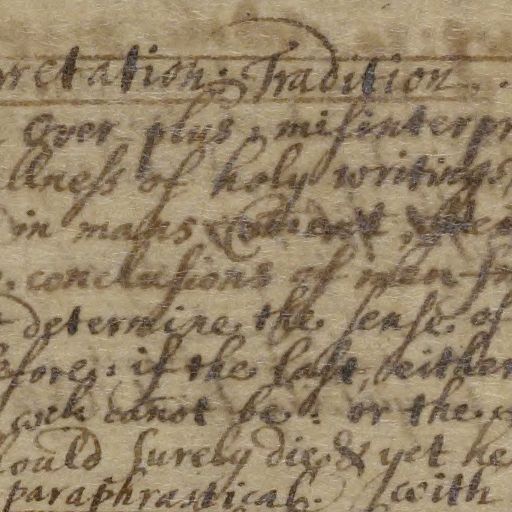 rretation: Tradition.
Over plus, misinterpr
llness of holy writings
in mans
conclusions of men
determine the sense of
efore: if the last, either
canot be: or the
ould surely die & yet he
paraphrastical. with